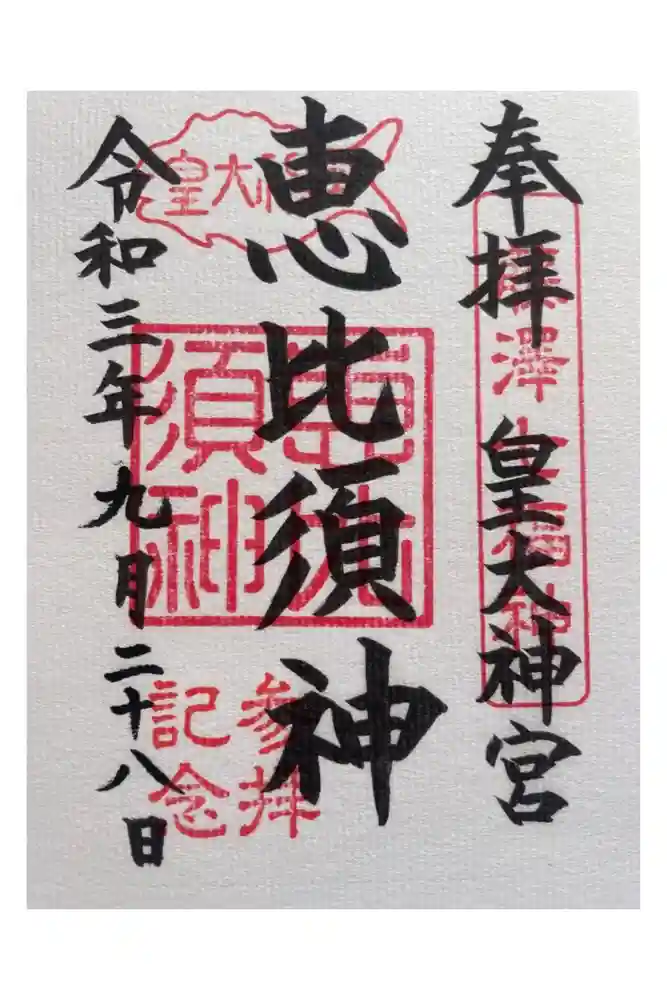 奉拝 皇大神宮
藤澤七福神
恵比須神
皇大神宮
恵比須神
参拝
記念
令和三年九月二十八日